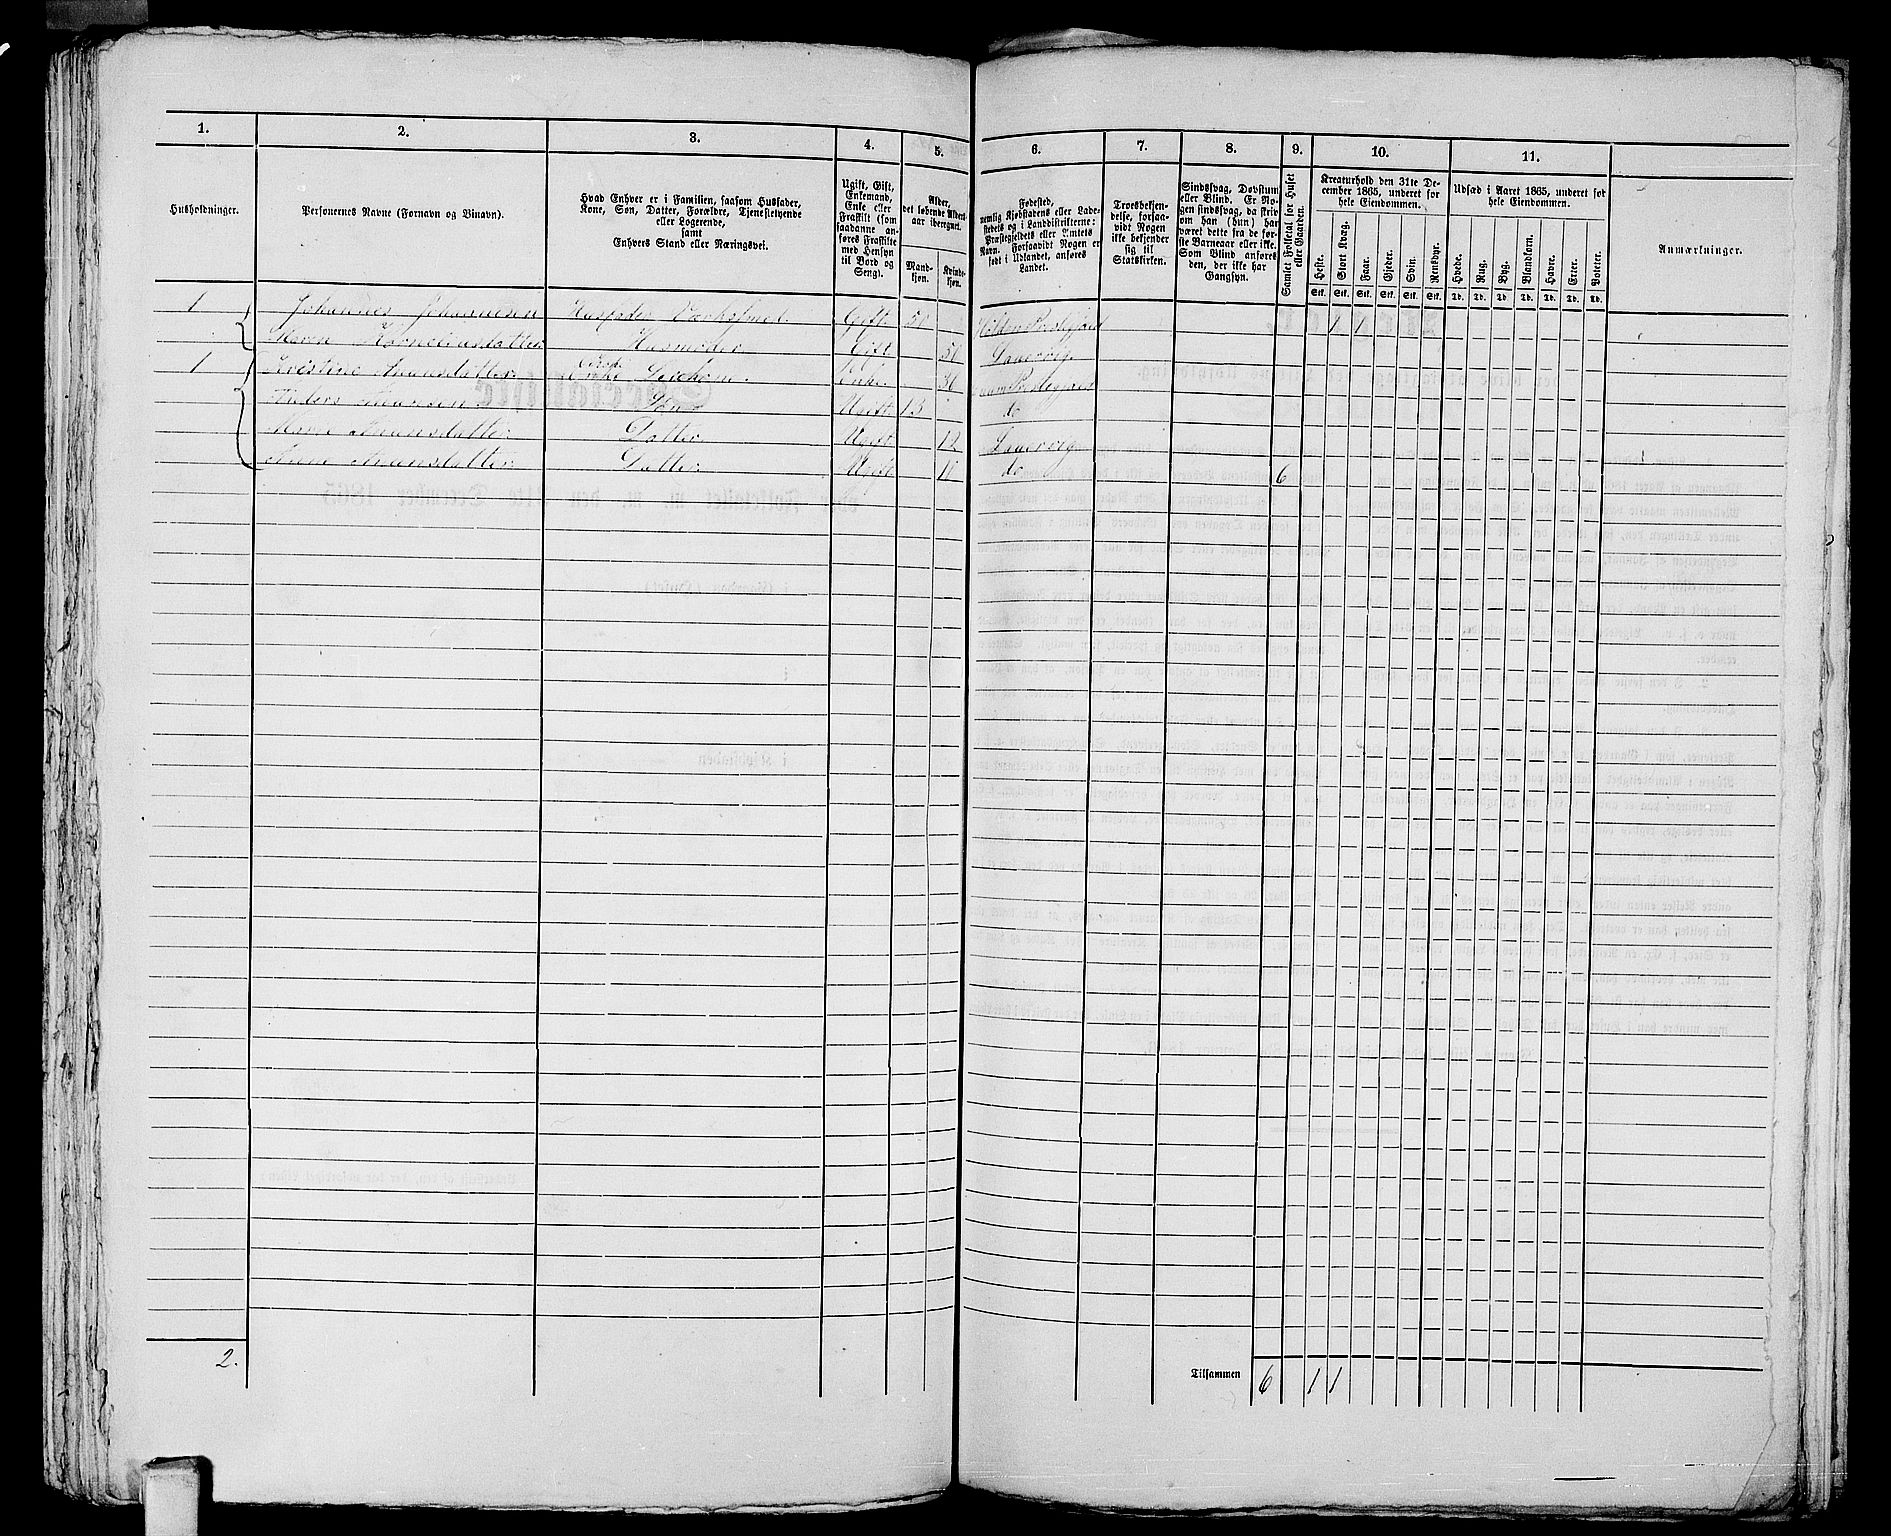 1.
2.
3.
4.
5.
6.
7.
8.
9.
10.
11.
Husholdninger.
Personernes Navne (Fornavn og Vinavn).
Hvad Enhver er i Familien, saasom Husfader,
Kone, Søn, Datter, Forældre, Tjenestetyende
eller Logerende,
samt
Enhvers Stand eller Næringsvei.
Ugift, Gift,
Enkemand,
Enke eller
Fraskilt (som
saadanne an-
føres Fraskilte
med Hensyn
til Bord og
Seng).
Alder,
det løbende Alders-
aar iberegnet.
Mand-
kjøn.
Kvinde-
kjøn.
Fødested,
nemlig Kjøbstadens eller Lade-
stedets og i Landdistrikterne:
Præstegjeldets eller Amtets
Navn. Forsaavidt Nogen er
født i Udlandet, anføres
Landet.
Troesbekjen-
delse, forsaa-
vidt Nogen
ikke bekjender
sig til
Statskirken.
Sindssvag, Døvstum
eller Blind. Er No-
gen sindssvag, da skriv
om han (hun) har
været dette fra de før-
ste Barneaar eller ikke.
Som Blind anføres
den, der ikke har
Gangsyn.
Samlet Folketal for Huset
eller Gaarden.
Kreaturhold den 31te De-
cember 1865, underet for
hele Eiendommen.
Heste.
Stort Kvæg.
Faar.
Gjeder.
Svin.
Rensdyr.
Stk. Stk. Stk. Stk. Stk. Stk.
Udsæd i Aaret 1865, underet for
hele Eiendommen.
Hvede.
Rug.
Byg.
Blandkorn.
Havre.
Erter.
Poteter.
Td. Td. Td. Td. Td. Td. Td.
Anmærkninger.
1 Johannes Johannesen Husfader Gift 1 1
Maren Korneliusdatter Husmoder Gift 50 Laurvig
1 Kristine Amunsdatter Enke
Anders Amunsen Søn Ugift 13 do
Maren Amunsdatter Datter Ugift 12 Laurvig
Anne Amunsdatter Datter Ugift 10 do 6
2.
Tilsammen 6 1 1